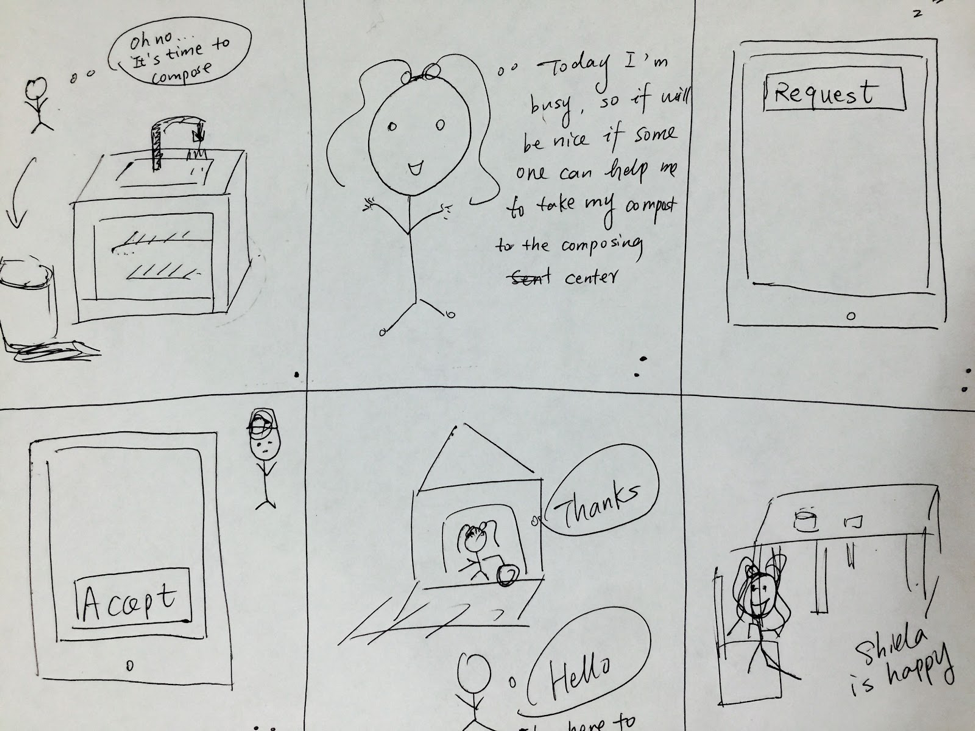 Oh no...
It's time to
compose
Today I'm
busy, so if will
be nice if some
one can help me
to take my compost
to the composing
center
Request
Accept
Thanks
Hello
here to
Shiela
is happy